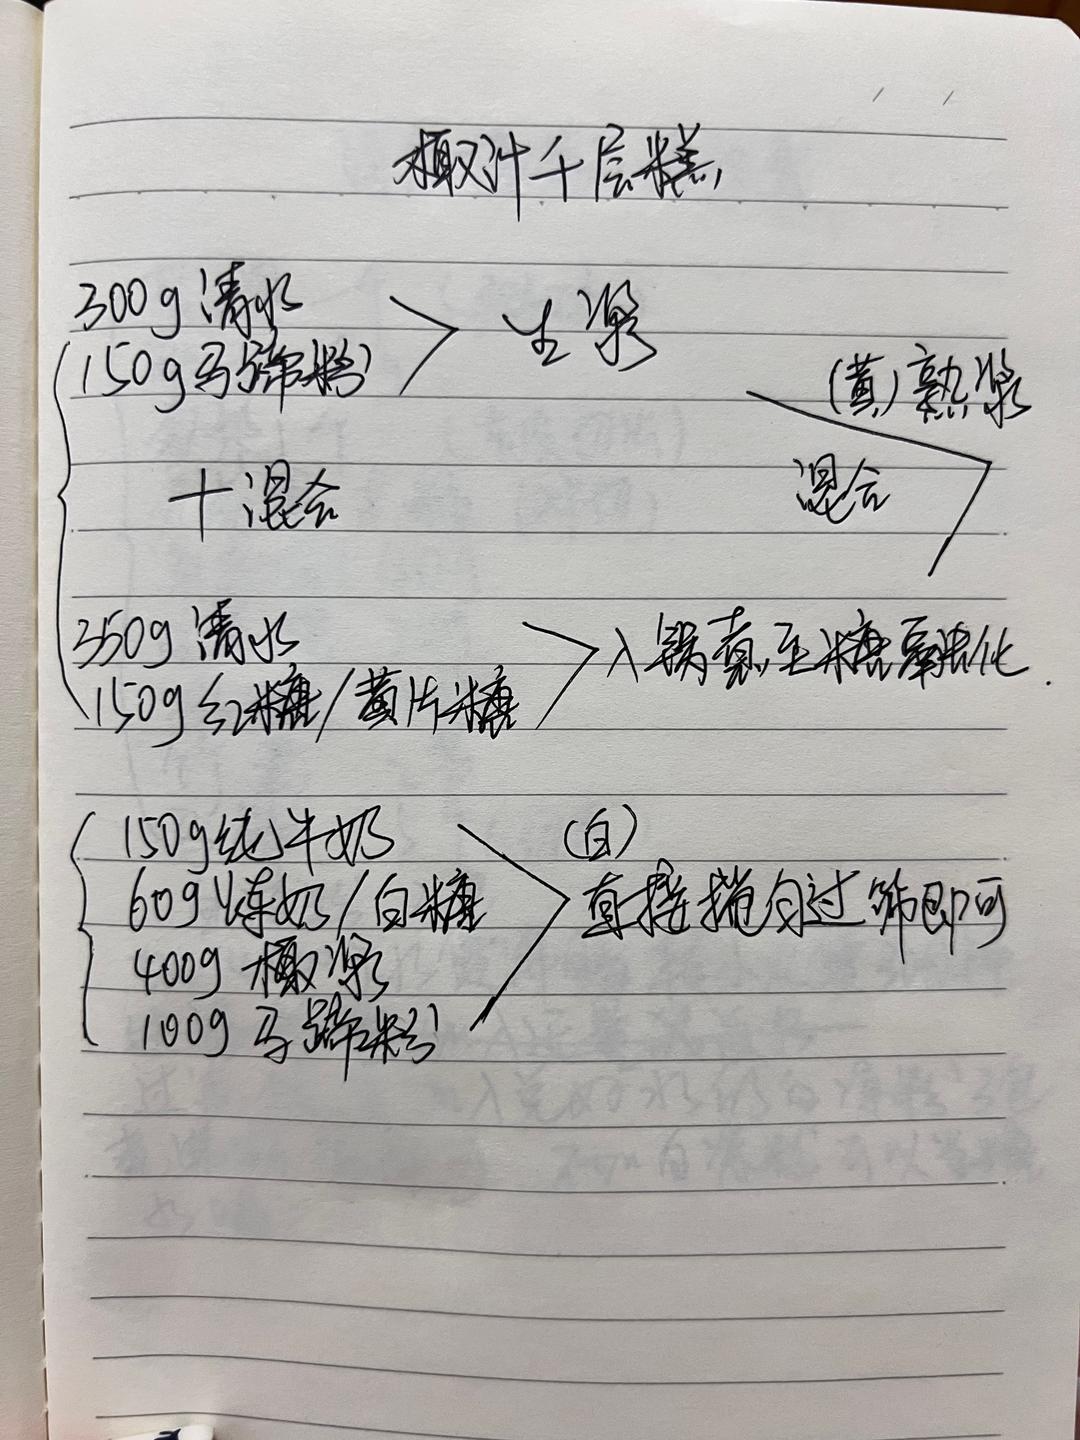 椰汁千层糕
300g 清水
150g 马蹄粉
生浆
(黄) 熟浆
十混合
混合
350g 清水
150g 红糖/黄片糖
入锅煮至糖融化.
150g 纯牛奶
60g 炼奶/白糖
400g 椰浆
100g 马蹄粉
(白)
直接搅匀过筛即可